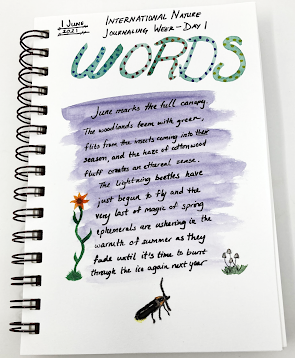 1 June
2021
International Nature
Journaling Week - Day 1
WORDS
June marks the full canopy.
The woodlands teem with green,
flits from the insects coming into their
season, and the haze of cottonwood
fluff creates an ethereal sense.
The lightning beetles have
just begun to fly and the
very last of magic of spring
ephemerals are ushering in the
warmth of summer as they
fade until it's time to burst
through the ice again next year